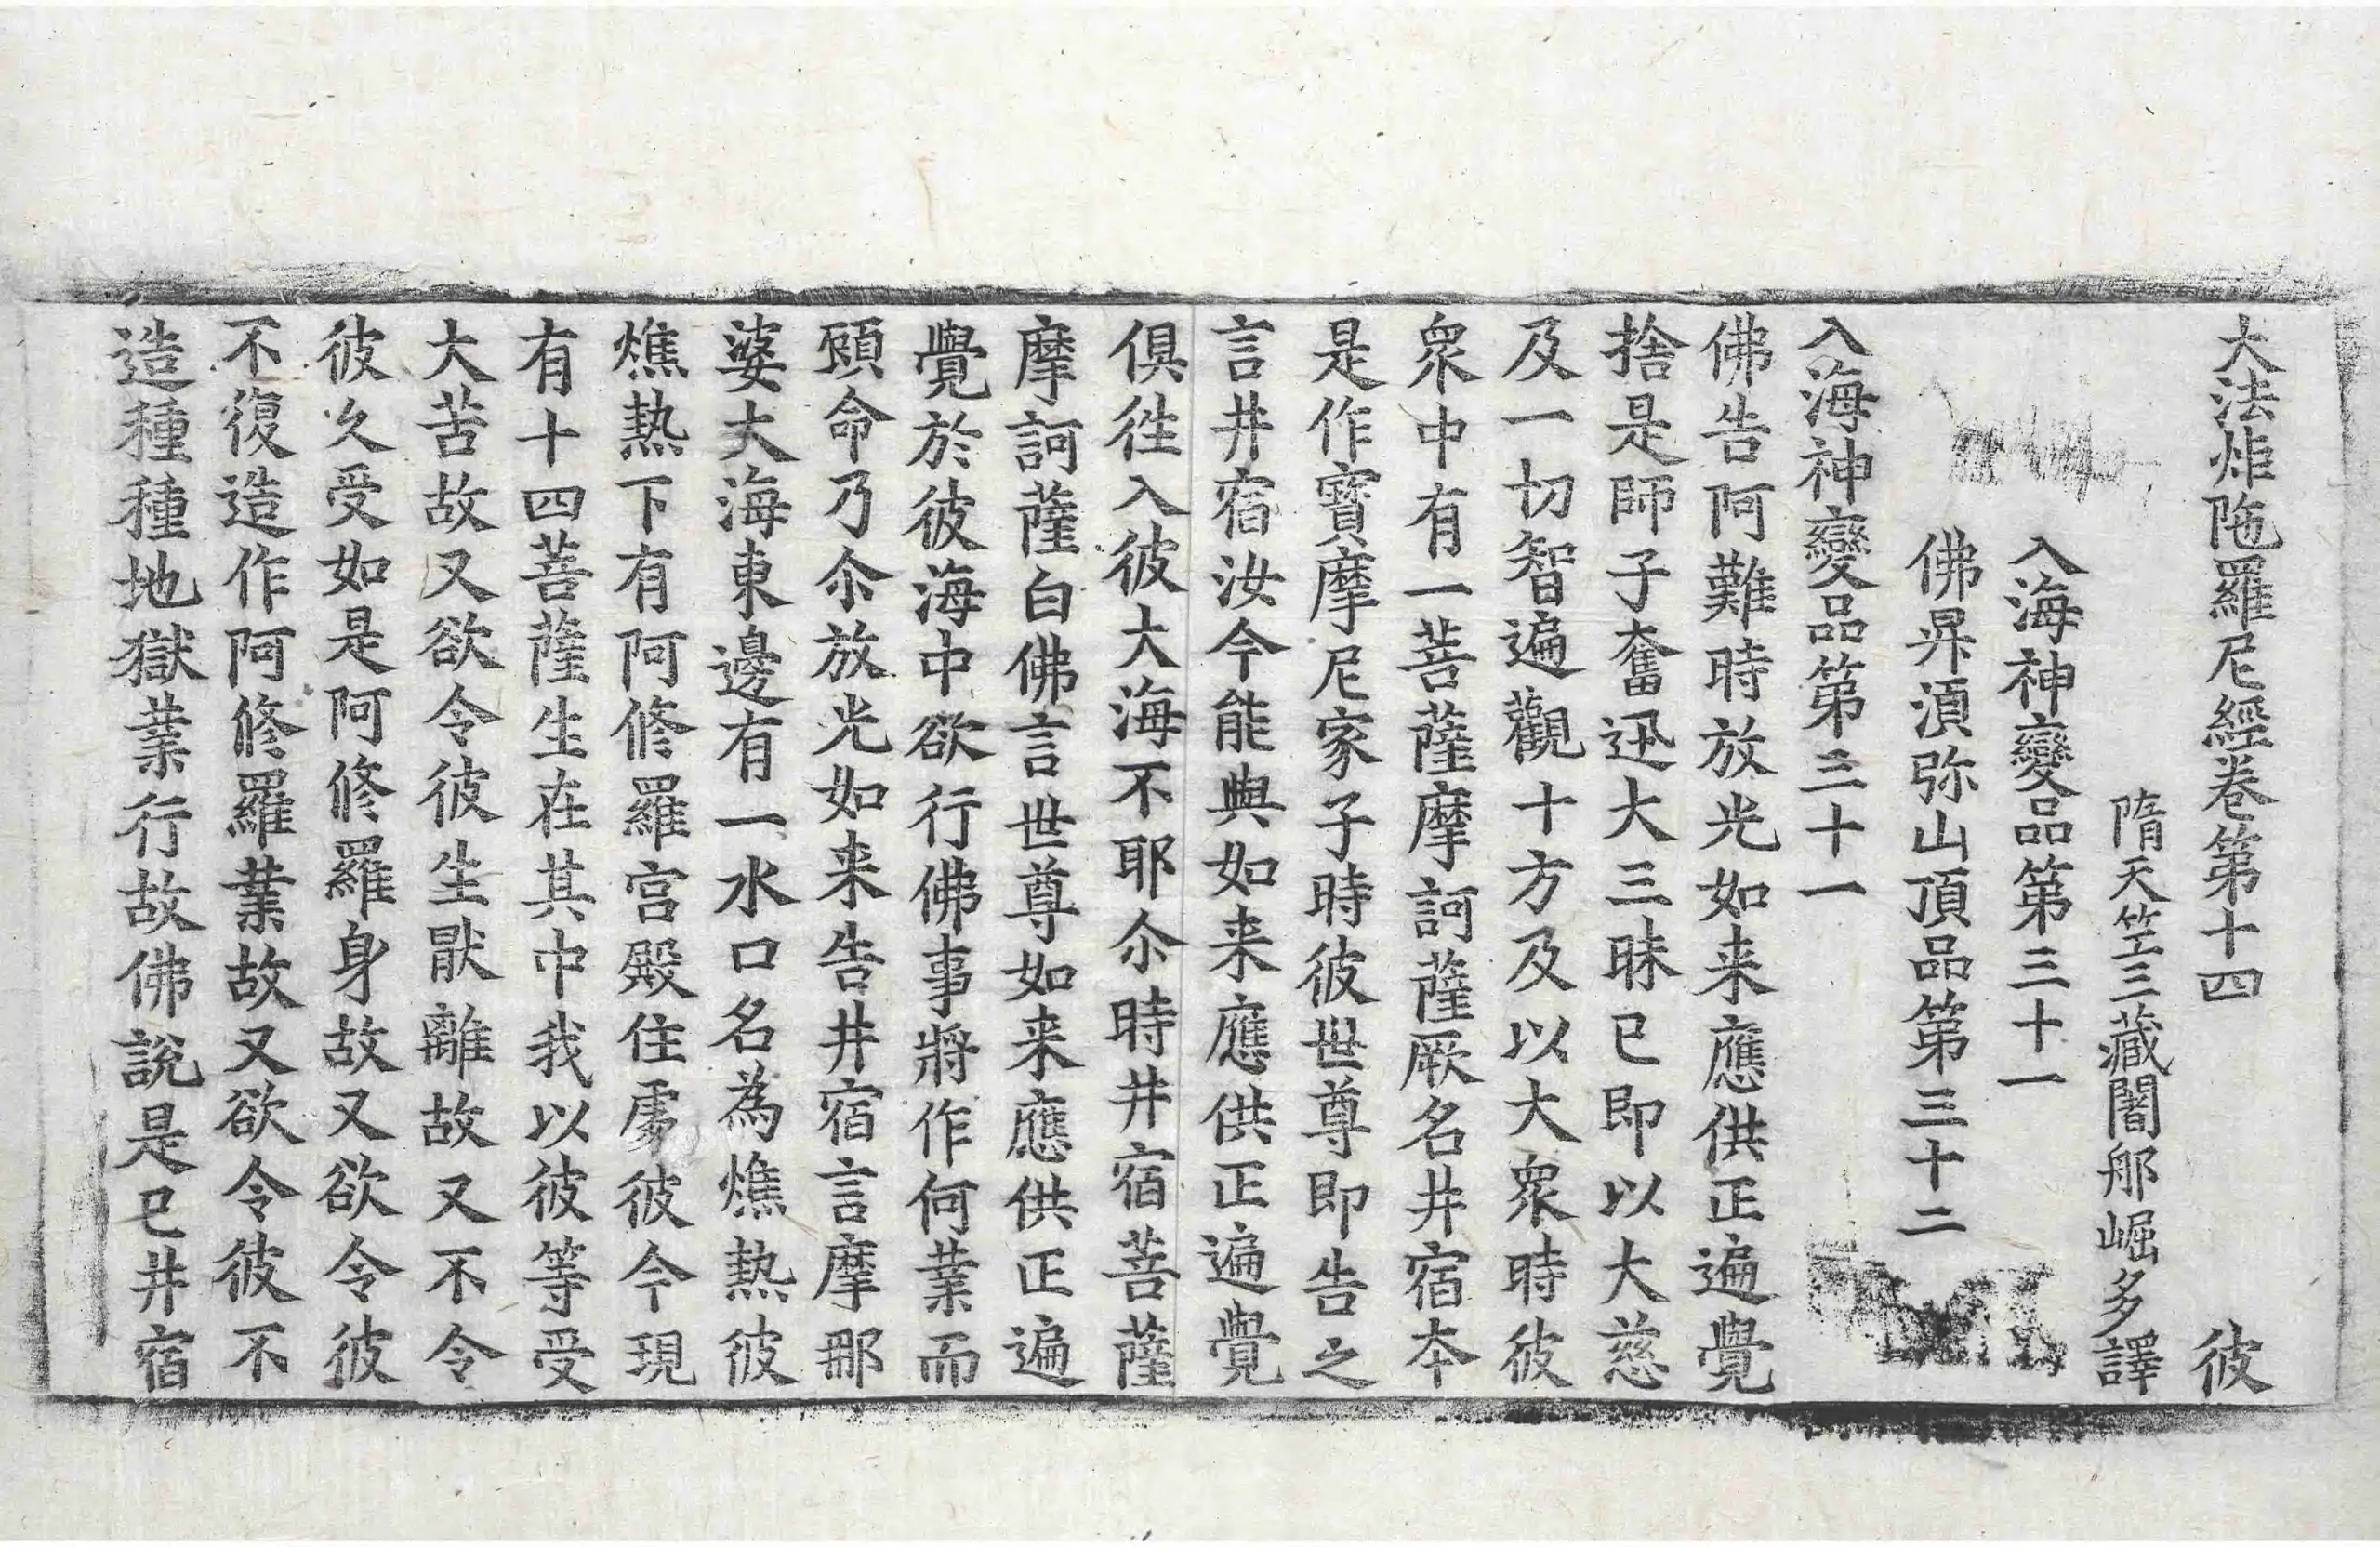 大法炬陁羅尼經卷第十四　　彼
隋天竺三藏闍那崛多譯
入海神變品第三十一
佛昇湏弥山頂品第三十二
入海神變品第三十一
佛告阿難時放光如来應供正遍覺
捨是師子奮迅大三昧已即以大慈
及一切智遍觀十方及以大衆時彼
衆中有一菩薩摩訶薩厥名井宿本
是作寳摩尼家子時彼世尊即告之
言井宿汝今能與如来應供正遍覺
俱徃入彼大海不耶尒時井宿菩薩
摩訶薩白佛言世尊如来應供正遍
覺於彼海中欲行佛事將作何業而
顧命乃尒放光如来告井宿言摩那
婆大海東邊有一水口名為燋熱彼
燋熱下有阿修羅宮殿住處彼今現
有十四菩薩生在其中我以彼等受
大苦故又欲令彼生猒離故又不令
彼久受如是阿修羅身故又欲令彼
不復造作阿修羅業故又欲令彼不
造種種地獄業行故佛說是已井宿